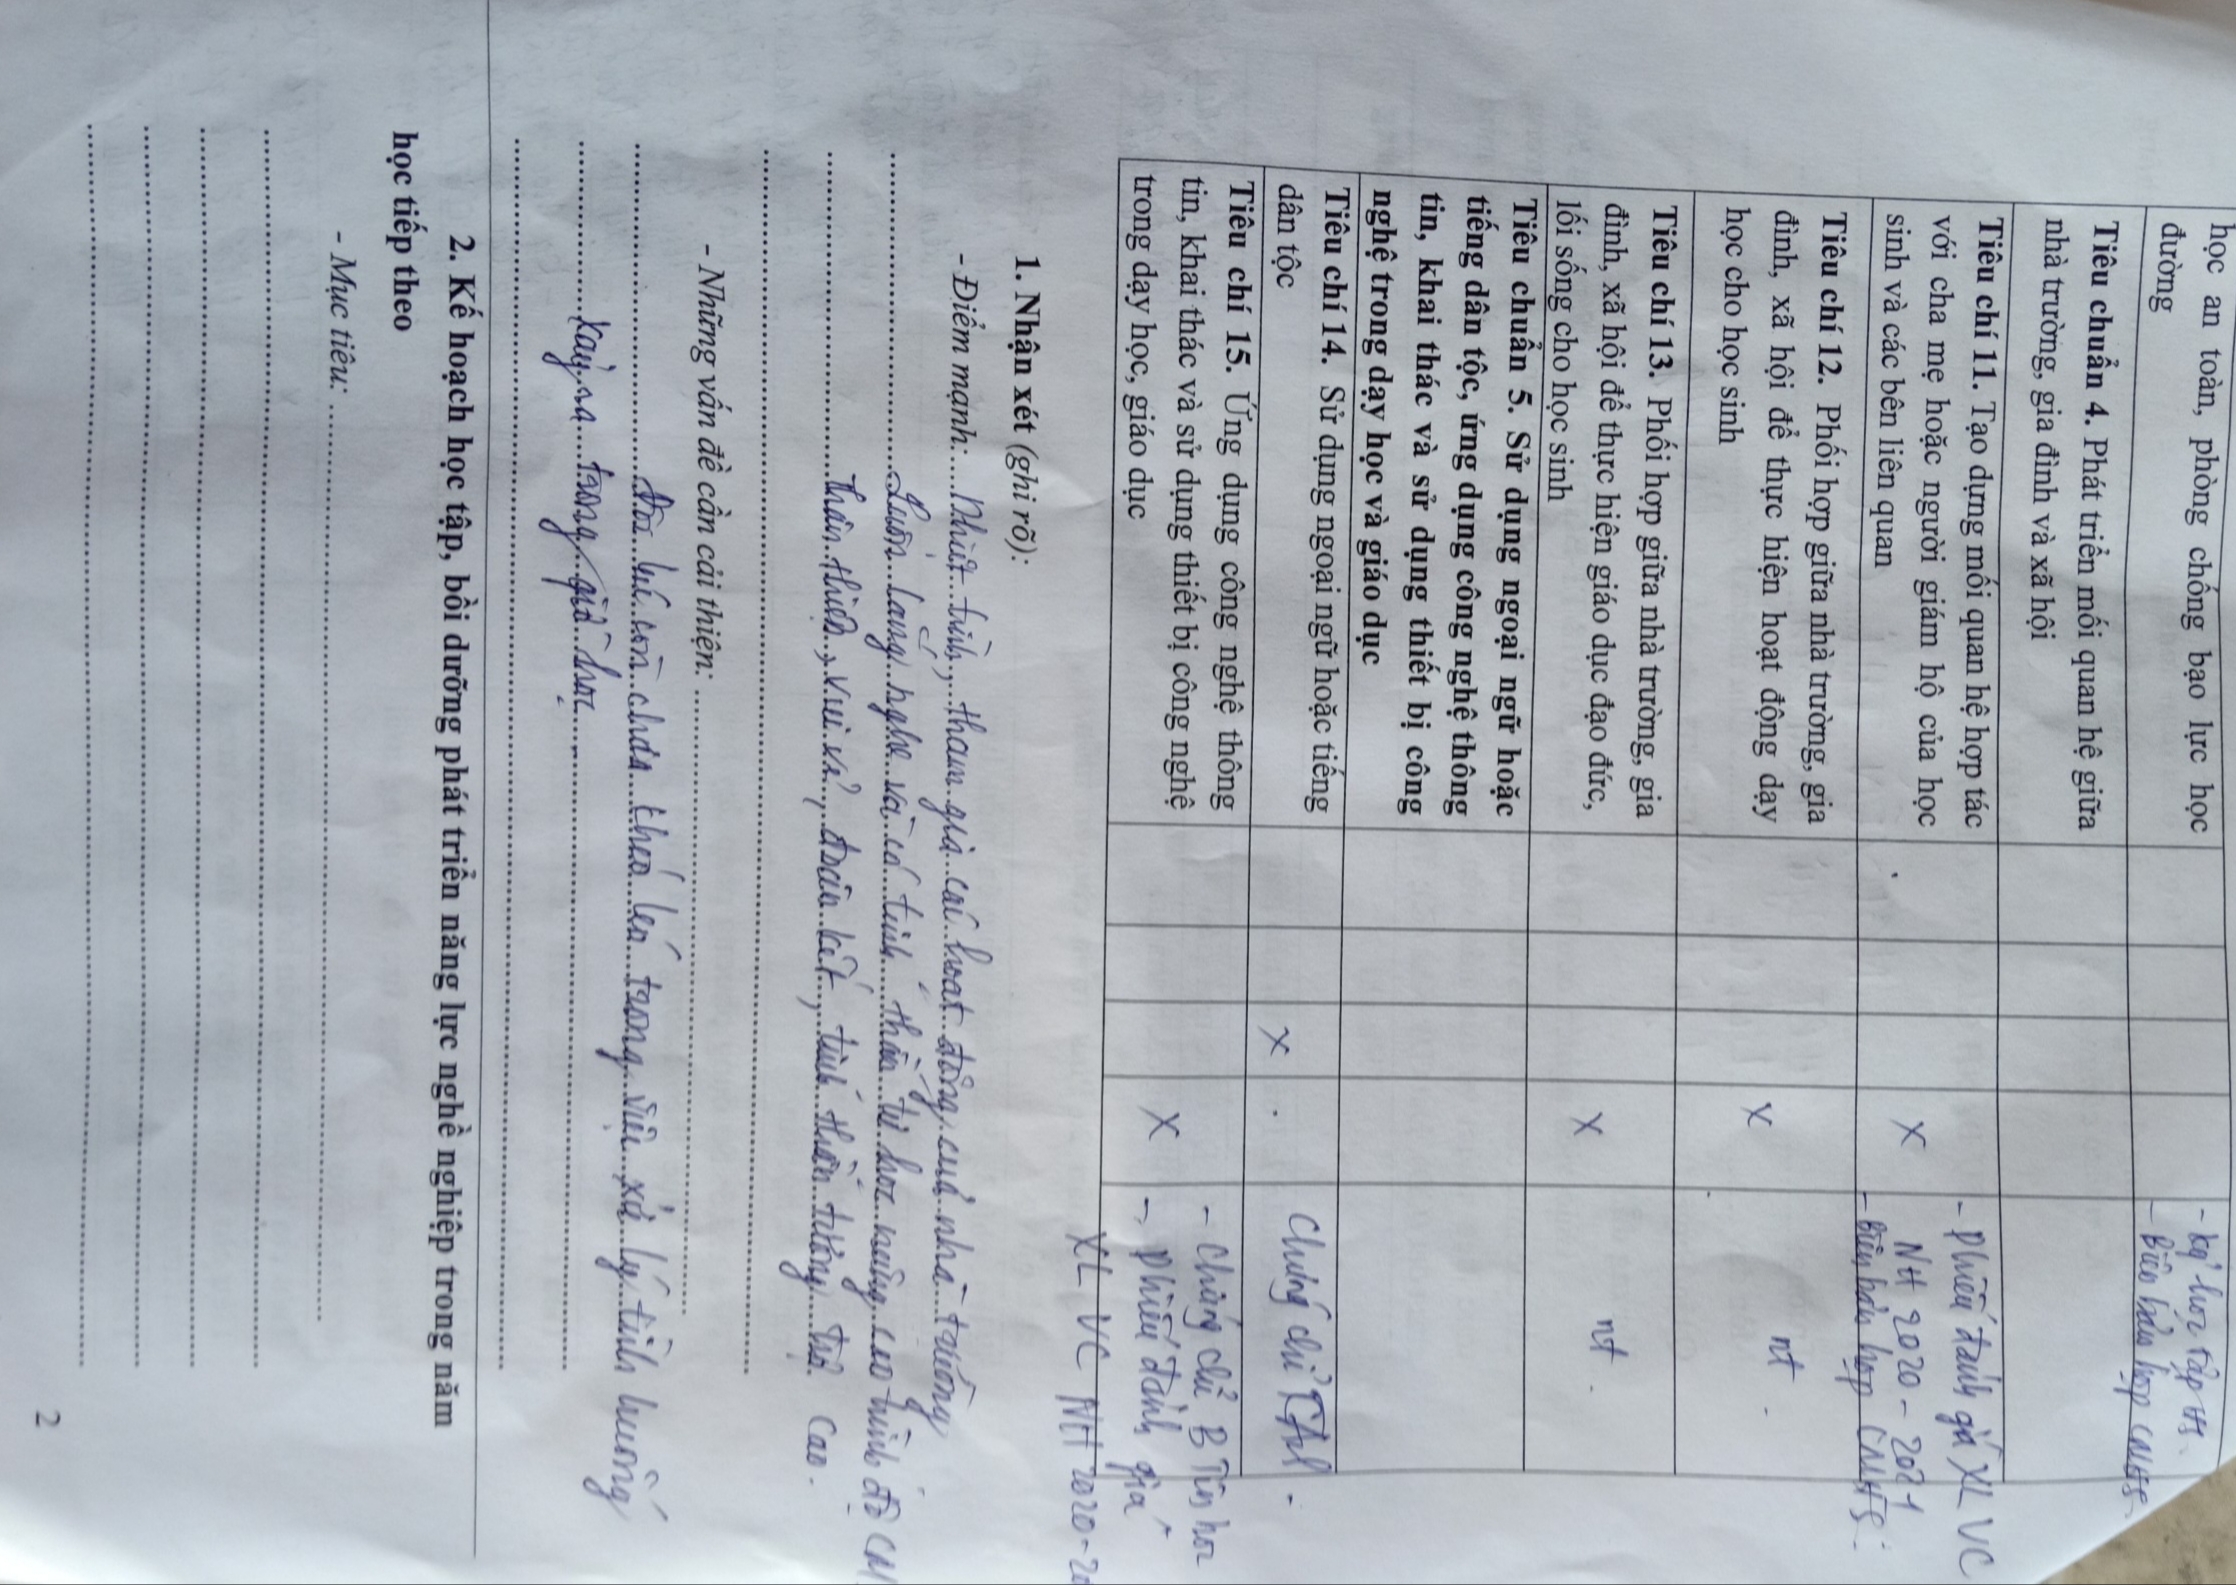 học an toàn, phòng chống bạo lực học
đường
- kq học tập HS
- Biên bản họp CMHS
Tiêu chuẩn 4. Phát triển mối quan hệ giữa
nhà trường, gia đình và xã hội
Tiêu chí 11. Tạo dựng mối quan hệ hợp tác
với cha mẹ hoặc người giám hộ của học
sinh và các bên liên quan
X
- Phiếu đánh giá XL VC
NH 2020 - 2021
- Biên bản họp CMHS.
Tiêu chí 12. Phối hợp giữa nhà trường, gia
đình, xã hội để thực hiện hoạt động dạy
học cho học sinh
X
nt
Tiêu chí 13. Phối hợp giữa nhà trường, gia
đình, xã hội để thực hiện giáo dục đạo đức,
lối sống cho học sinh
X
nt
Tiêu chuẩn 5. Sử dụng ngoại ngữ hoặc
tiếng dân tộc, ứng dụng công nghệ thông
tin, khai thác và sử dụng thiết bị công
nghệ trong dạy học và giáo dục
Tiêu chí 14. Sử dụng ngoại ngữ hoặc tiếng
dân tộc
X
Chứng chỉ
Tiêu chí 15. Ứng dụng công nghệ thông
tin, khai thác và sử dụng thiết bị công nghệ
trong dạy học, giáo dục
X
- Chứng chỉ B Tin học
- Phiếu đánh giá
XL VC NH 2020 - 20
1. Nhận xét (ghi rõ):
- Điểm mạnh: Nhiệt tình, tham gia các hoạt động của nhà trường
Luôn lắng nghe và có tinh thần tự học nâng cao trình độ CM
thân thiện, vui vẻ, đoàn kết, tinh thần tương trợ cao.
- Những vấn đề cần cải thiện:
Đôi lúc còn chưa khéo léo trong việc xử lý tình huống
xảy ra trong giờ học
2. Kế hoạch học tập, bồi dưỡng phát triển năng lực nghề nghiệp trong năm
học tiếp theo
- Mục tiêu:
2